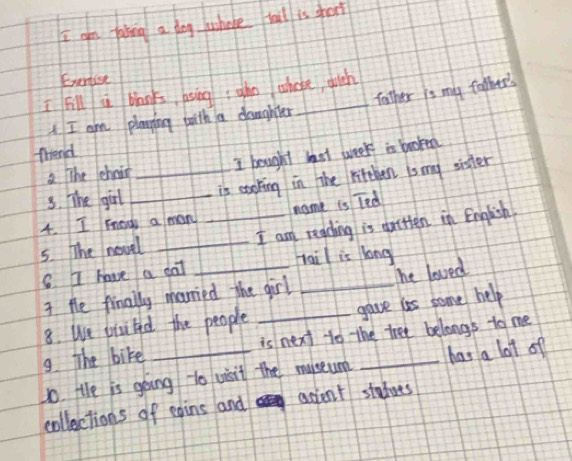 I am taking a dog whose tail is short
Exercise
I Fill in blanks, using : who, whose, which
1 I am playing with a daughter ______ father is my father's
friend
2 The chair ______ I bought last week is broken
3. The girl ______ is cooking in the kitchen is my sister
4. I know a man ______ name is Ted
5. The novel ______ I am reading is written in English.
6. I have a cat ______ tail is long
7 He finally married the girl ______ he loved
8. We visited the people ______ gave us some help
9. The bike ______ is next to the tree belongs to me
10. He is going to visit the museum ______ has a lot of
collections of coins and acient statues